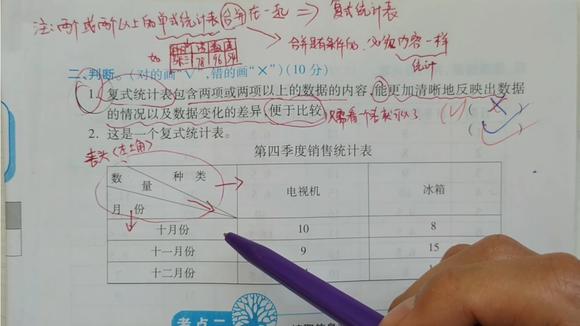 注:两个或两个以上的单式统计表合并在一起 ⇒ 复式统计表
合并是有条件的,必须内容一样
如 语 数 英
统计
二、判断。(对的画“√”,错的画“×”)(10分)
1. 复式统计表包含两项或两项以上的数据的内容,能更加清晰地反映出数据
的情况以及数据变化的差异,便于比较 只需看一个表就可以了 ( )
2. 这是一个复式统计表。 ( √ )
表头(左上角)
第四季度销售统计表
数量 种类 月份 电视机 冰箱
十月份 10 8
十一月份 9 15
十二月份
考点二